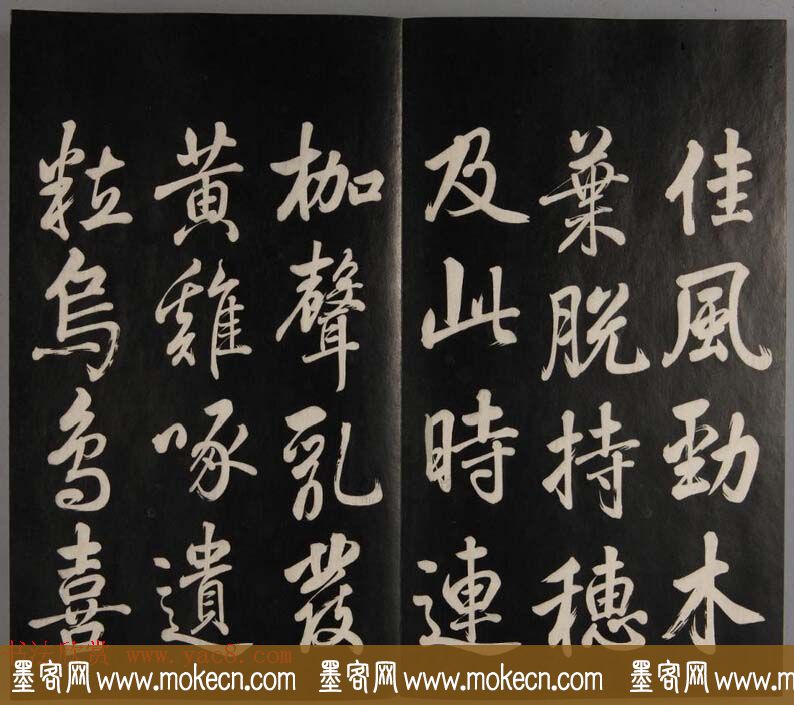 佳風勁木
葉脱持穗
及此時連
枷聲亂發
黄雞啄遺
粒烏鳥喜
书法欣赏 www.yac8.com
墨客网 www.mokecn.com 墨客网 www.mokecn.com 墨客网 www.mokecn.com